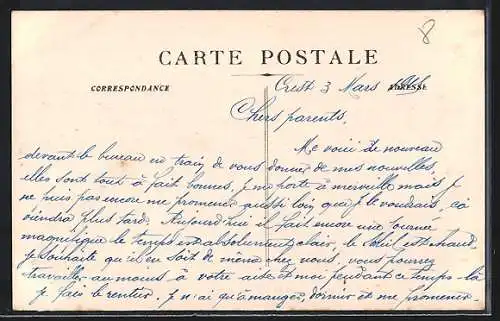 8
CARTE POSTALE
CORRESPONDANCE
ADRESSE
Crest 3 Mars
Chers parents,
Me voici de nouveau
devant le bureau en train de vous donner de mes nouvelles,
elles sont tout à fait bonnes, je me porte à merveille mais je
ne puis pas encore me promener aussi loin que je le voudrais, ça
viendra plus tard. Aujourd'hui il fait encore une journée
magnifique le temps est absolument clair, le soleil est chaud
je souhaite qu'il en soit de même chez vous, vous pourrez
travailler au moins à votre aise et moi pendant ce temps-là
je fais le rentier. Je n'ai qu'à manger, dormir et me promener.